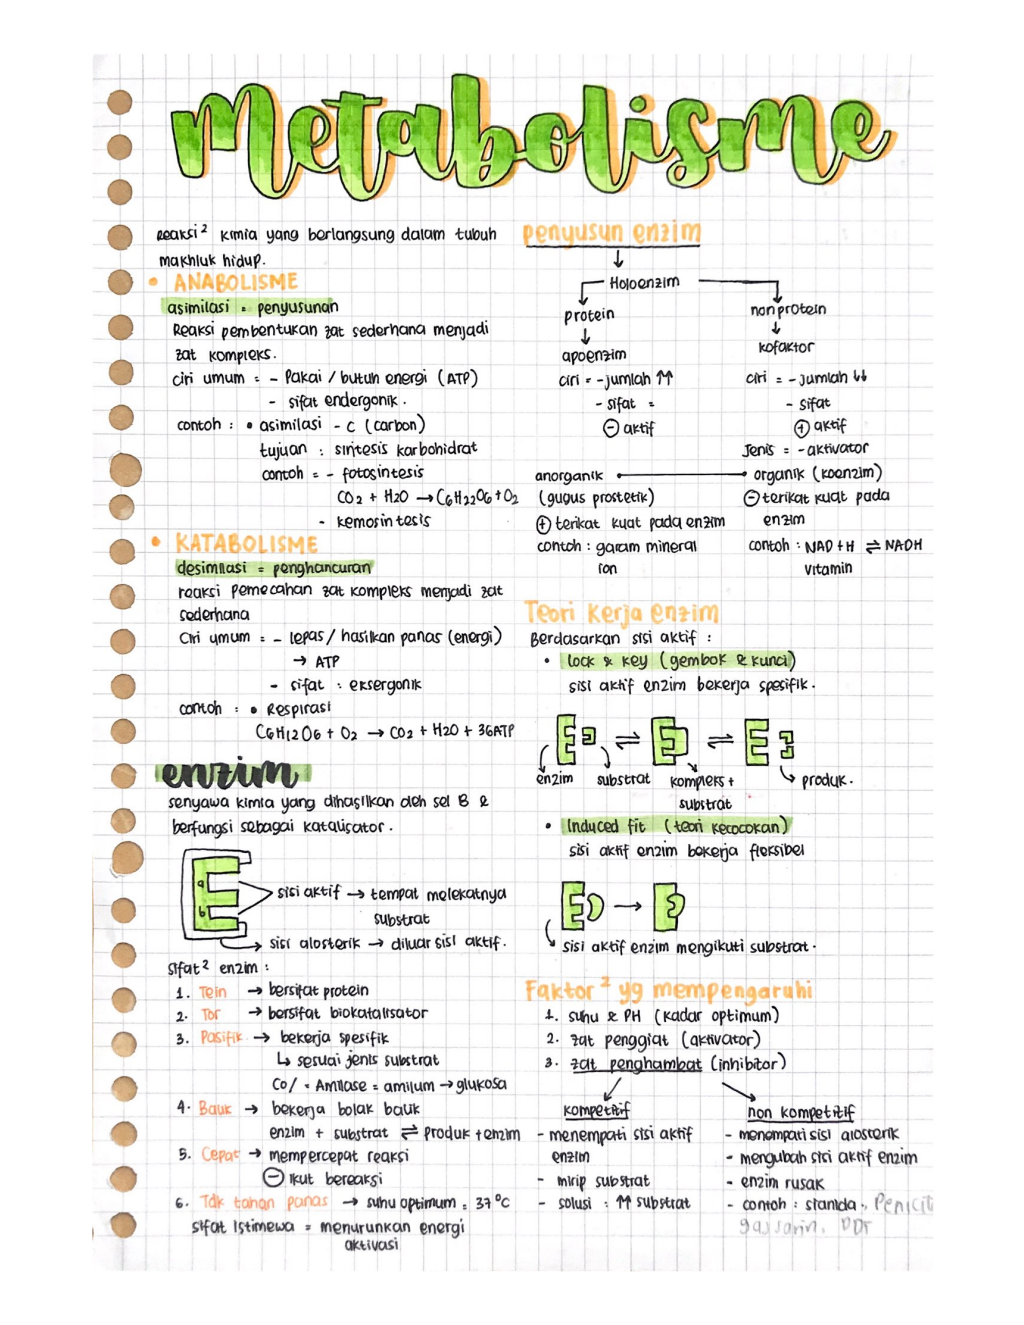 Metabolisme
Reaksi² kimia yang berlangsung dalam tubuh
makhluk hidup.
• ANABOLISME
asimilasi = penyusunan
Reaksi pembentukan zat sederhana menjadi
zat kompleks.
ciri umum = - Pakai / butuh energi (ATP)
- sifat endergonik.
contoh : • asimilasi - C (carbon)
tujuan : sintesis karbohidrat
contoh = - fotosintesis
CO2 + H2O → C6H22O6 + O2
- kemosintesis
• KATABOLISME
desimilasi = penghancuran
reaksi pemecahan zat kompleks menjadi zat
sederhana
Ciri umum = - lepas / hasilkan panas (energi)
→ ATP
- sifat : eksergonik
contoh : • Respirasi
C6H12O6 + O2 → CO2 + H2O + 36ATP
enzim
senyawa kimia yang dihasilkan oleh sel B &
berfungsi sebagai katalisator.
a
b
E
sisi aktif → tempat melekatnya
substrat
sisi alosterik → diluar sisi aktif.
sifat² enzim :
1. Tein → bersifat protein
2. Tor → bersifat biokatalisator
3. Pasifik → bekerja spesifik
↳ sesuai jenis substrat
Co/ = Amilase = amilum → glukosa
4. Bauk → bekerja bolak bauk
enzim + substrat ⇌ produk + enzim
5. Cepat → mempercepat reaksi
⊖ ikut bereaksi
6. Tdk tahan panas → suhu optimum = 37°C
sifat Istimewa = menurunkan energi
aktivasi
penyusun enzim
↓
Holoenzim
protein
↓
apoenzim
ciri = - jumlah ↑↑
- sifat =
⊖ aktif
non protein
↓
kofaktor
ciri = - jumlah ↓↓
- sifat
⊕ aktif
Jenis = - aktivator
anorganik
(gugus prostetik)
⊕ terikat kuat pada enzim
contoh : garam mineral
ion
organik (koenzim)
⊖ terikat kuat pada
enzim
contoh : NAD + H ⇌ NADH
vitamin
Teori Kerja enzim
Berdasarkan sisi aktif :
• lock & key (gembok & kunci)
sisi aktif enzim bekerja spesifik.
⇌ ⇌
enzim substrat kompleks + produk.
substrat
• Induced fit (teori kecocokan)
sisi aktif enzim bekerja fleksibel
→
sisi aktif enzim mengikuti substrat.
Faktor² yg mempengaruhi
1. suhu & PH (kadar optimum)
2. zat penggiat (aktivator)
3. zat penghambat (inhibitor)
kompetitif
- menempati sisi aktif
enzim
- mirip substrat
- solusi : ↑↑ substrat
non kompetitif
- menempati sisi alosterik
- mengubah sisi aktif enzim
- enzim rusak
- contoh : sianida, Penicil
gas sarin, DDT